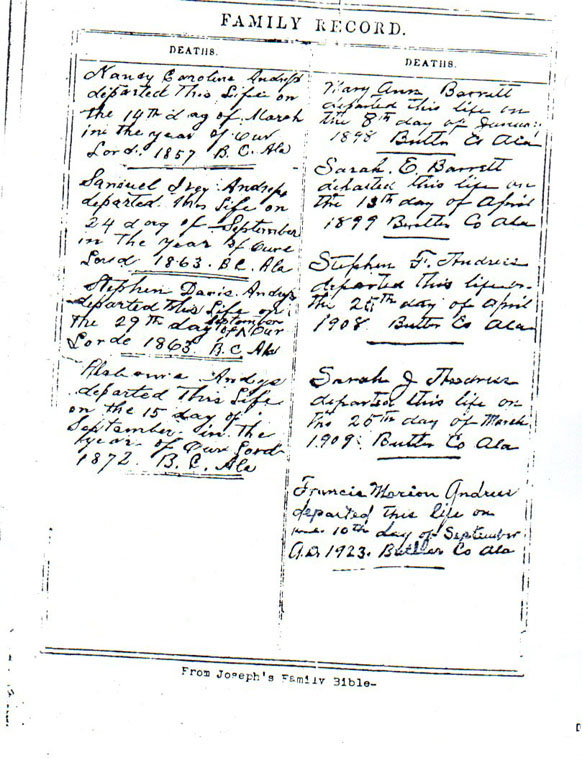 FAMILY RECORD.
DEATHS.
Nancy Caroline Andress
departed This Life on
the 14th day of March
in the year of Our
Lord. 1857 B. C. Ala
Samuel Ivey Andress
departed This Life on
24 day of September
in The year of Oure
Lord 1863. B.C. Ala
Stephen Davis Andress
departed This Life on
the 29th day of September Our
Lorde 1863. B.C. Ala
Andys
departed This Life
on the 15 day of
September in the
year of Our Lord
1872. B. C. Ala
DEATHS.
Mary Ann Barrett
departed this life on
the 8th day of Januar.
1898 Butler Co Ala
Sarah. E. Barrett
departed this life on
the 13th day of April
1899 Butler Co Ala
Stephen F. Andress
departed this life on
the 25th day of April
1908 Butler Co Ala
Sarah J Andress
departed this life on
the 25th day of March
1909. Butler Co Ala
Francis Marion Andress
departed this life on
the 10th day of September
A.D. 1923. Butler Co Ala
From Joseph's Family Bible-